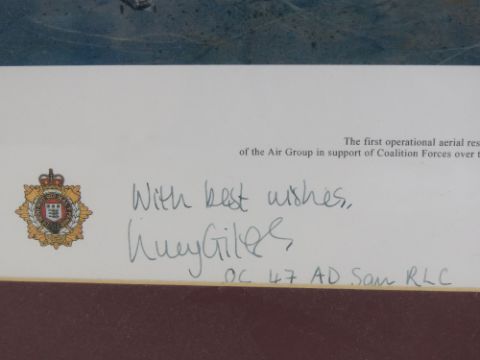 The first operational aerial res
of the Air Group in support of Coalition Forces over t
With best wishes,
OC 47 AD Sqn RLC